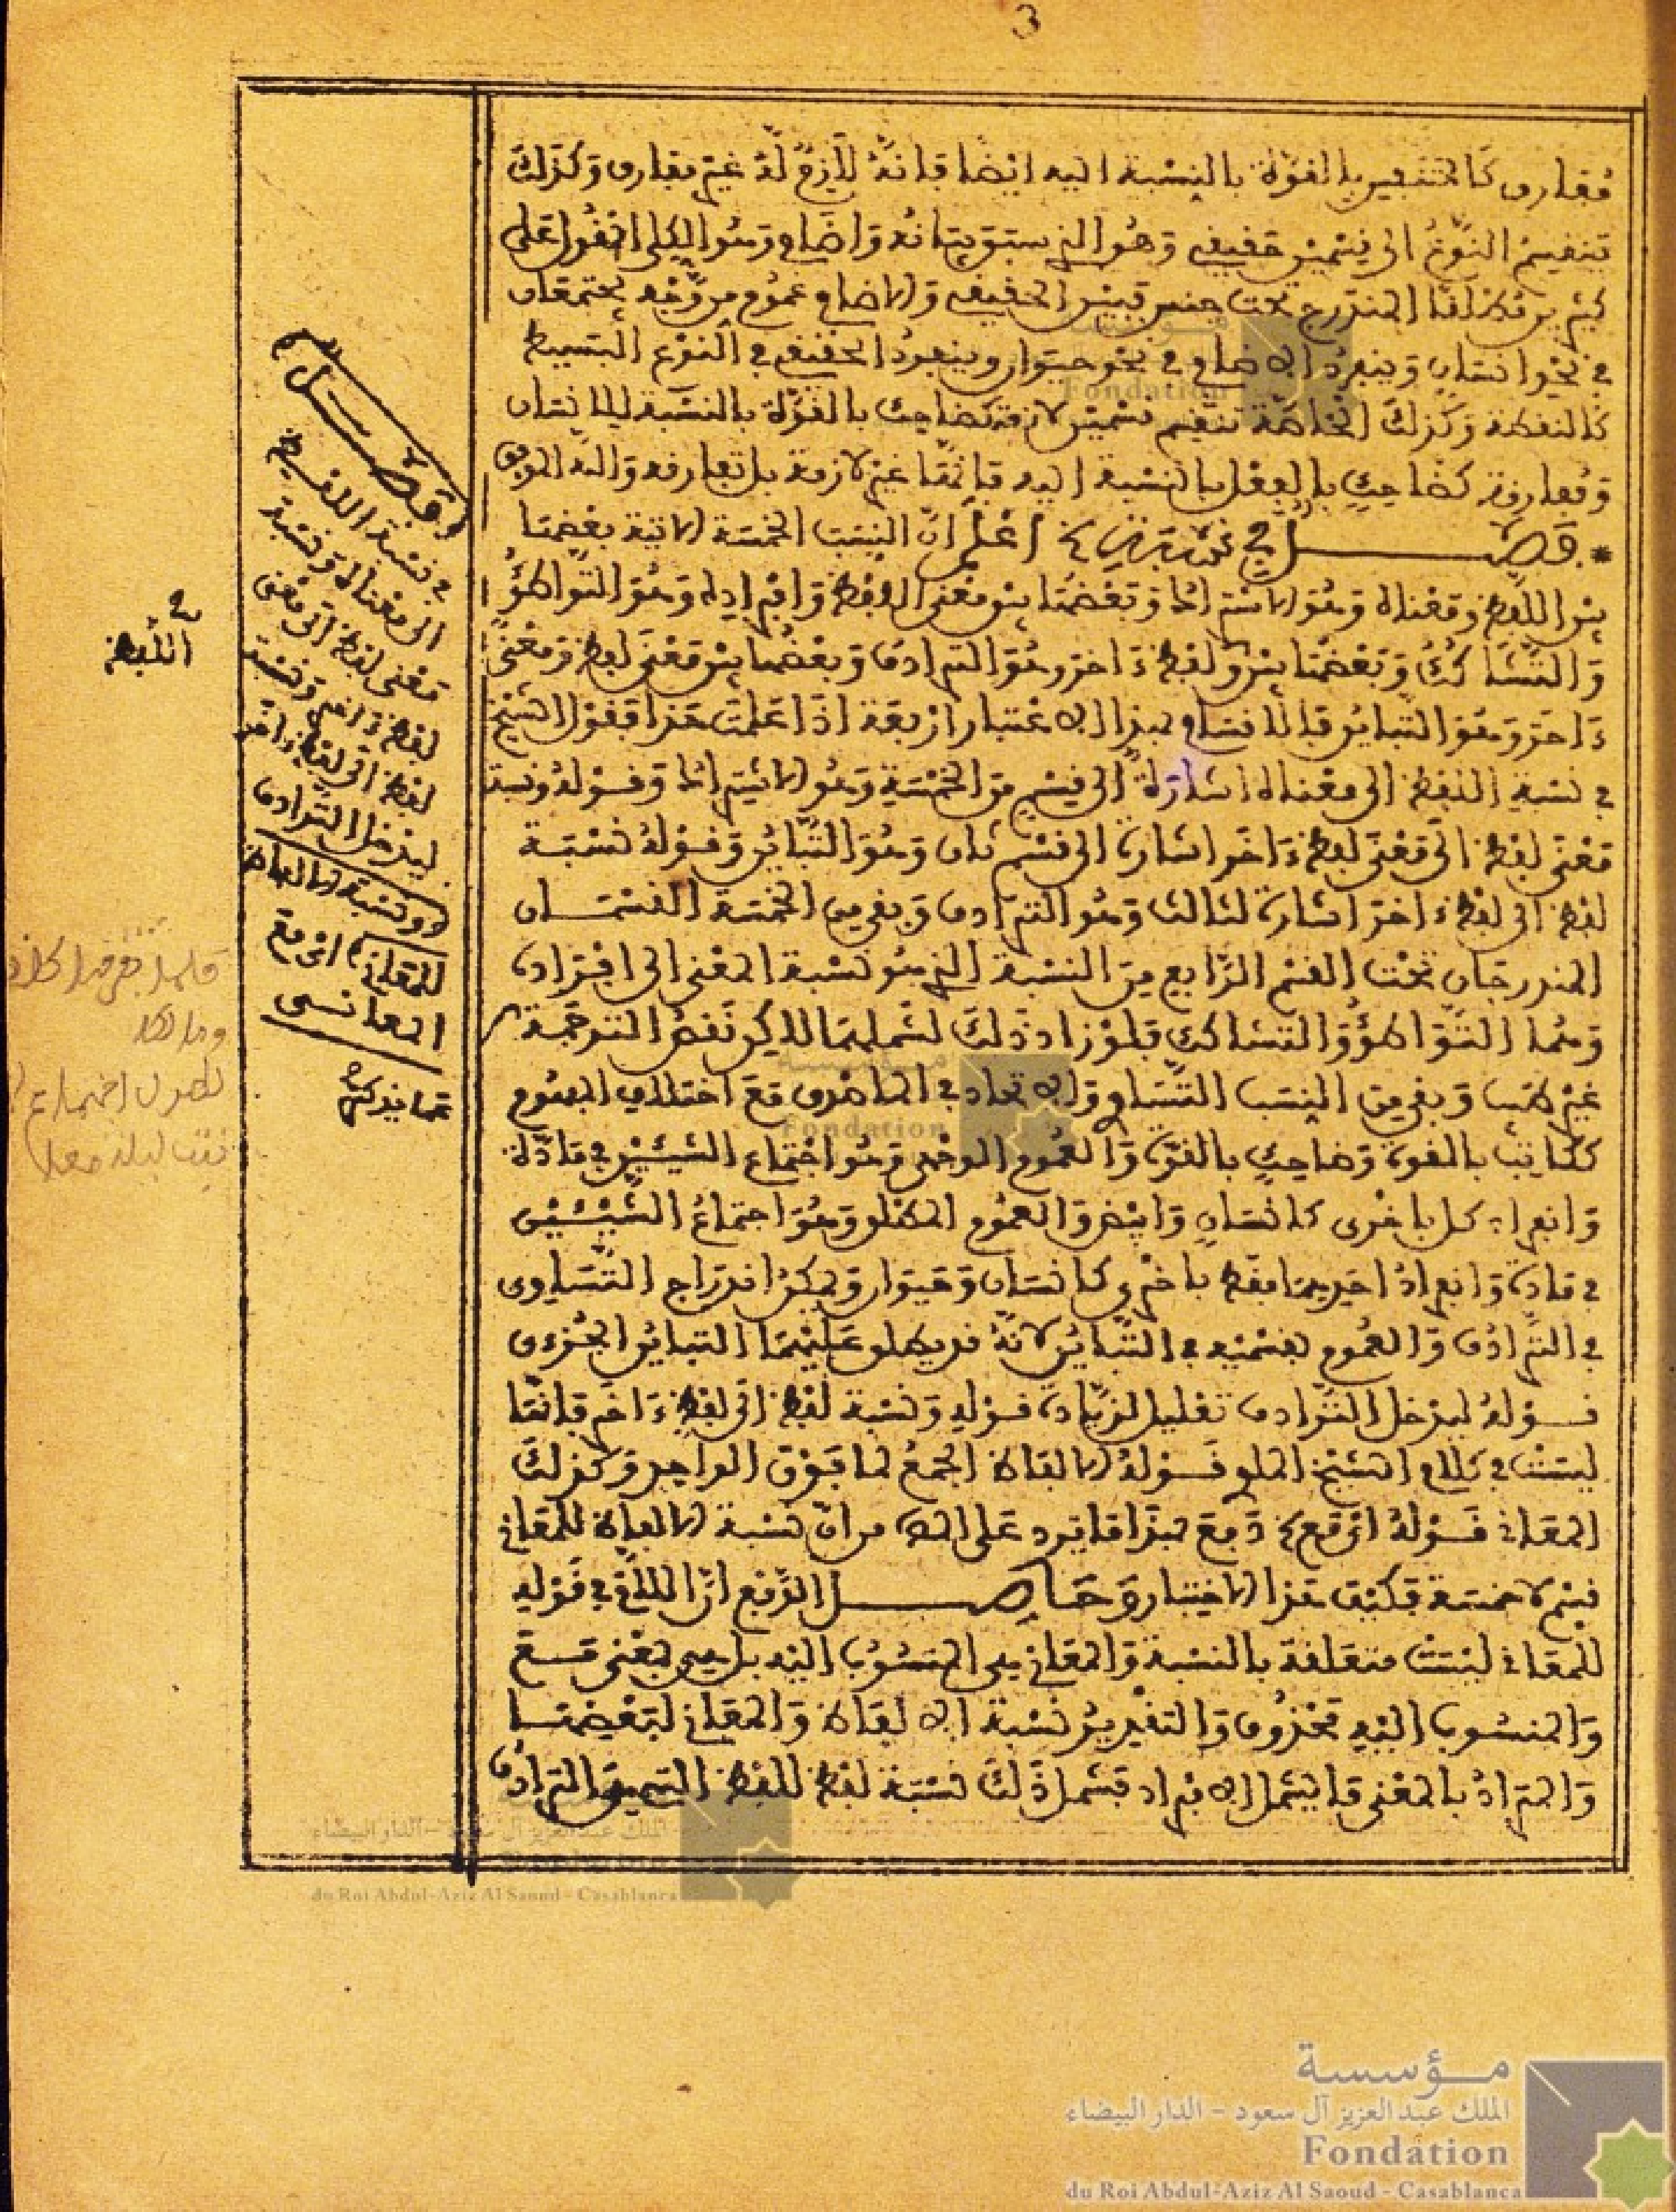 3
مفارق كالمتنفس بالقوة بالنسبة اليه ايضا فانه لازم له غير مفارق وكذلك
تنقسم النوع الى قسمين حقيقي وهو الذي ستوبتانه واضافي وهو الكلي المقول على
كثيرين المندرج تحت جنس فبين الحقيقي والاضافي عموم من وجه يجتمعان
في نحو انسان وينفرد الاضافي في نحو حيوان وينفرد الحقيقي في النوع البسيط
كالنقطة وكذلك الخاصة تنقسم قسمين لازمة كضاحك بالقوة بالنسبة للانسان
ومفارقة كضاحك بالفعل بالنسبة اليه فانها غير لازمة بل تفارقه والله الموفق
فصل في اعلم ان النسب الخمسة الاتية بعضها
بين اللفظ ومعناه وهو الاشتراك وبعضها بين معنى اللفظ وافراده وهو التواطؤ
والتشاكك وبعضها بين ولفظ ءاخر وهو الترادف وبعضها بين معنى لفظ ومعنى
ءاخر وهو التباين فالاقسام بهذا الاعتبار اربعة اذا علمت هذا فقول الشيخ
في نسبة اللفظ الى معناه اشارة الى قسم من الخمسة وهو الاشتراك وقوله ونسبة
معنى لفظ الى معنى لفظ ءاخر اشارة الى قسم ثان وهو التباين وقوله نسبة
لفظ الى لفظ ءاخر اشارة لثالث وهو الترادف وبقي من الخمسة القسمان
المندرجان تحت القسم الرابع من النسبة الذي هو نسبة المعنى الى افراده
وهما التواطؤ والتشاكك فلو زاد ذلك لشملهما لاكن نقص الترجمة
غير عيب وبقي من النسب التساوي والاتحاد في الماصدق مع اختلاف المفهوم
ككاتب بالقوة وضاحك بالقوة والعموم الوجهي وهو اجتماع الشيئين في مادة
وانفراد كل باخرى كانسان وابيض والعموم المطلق وهو اجتماع الشيئين
في مادة وانفراد احدهما فقط باخرى كانسان وحيوان ويمكن اندراج التساوي
في الترادف والعموم بقسميه في التباين لانه قد يطلق عليهما التباين الجزءي
قوله ليدخل الترادف تعليل لزيادة قوله ونسبة لفظ الى لفظ ءاخر فانها
ليست في كلام الشيخ الملوي قوله الالفاظ الجمع لما فوق الواحد وكذلك
المعاني قوله اي مع دفع بهذا ما يرد على المص من ان نسبة الالفاظ للمعاني
قسم لا خمسة فكيف هذا الاخبار وحاصل الدفع ان اللام في قوله
للمعاني ليست متعلقة بالنسبة والمعاني هي المنسوب اليه بل هي بمعنى مع
والمنسوب اليه محذوف والتقدير نسبة الالفاظ والمعاني لبعضها
والمراد بالمعنى ما يشمل الافراد فيشمل ذلك نسبة لفظ للفظ التي هي الترادف
فصل
في نسبة اللفظ
الى معناه ونسبة
معنى لفظ الى معنى
لفظ ءاخر ونسبة
لفظ الى لفظ ءاخر
ليدخل الترادف
ونسبة الالفاظ
للمعاني اي مع
المعاني
اللفظ
مؤسسة
الملك عبد العزيز آل سعود - الدار البيضاء
Fondation
du Roi Abdul-Aziz Al Saoud - Casablanca